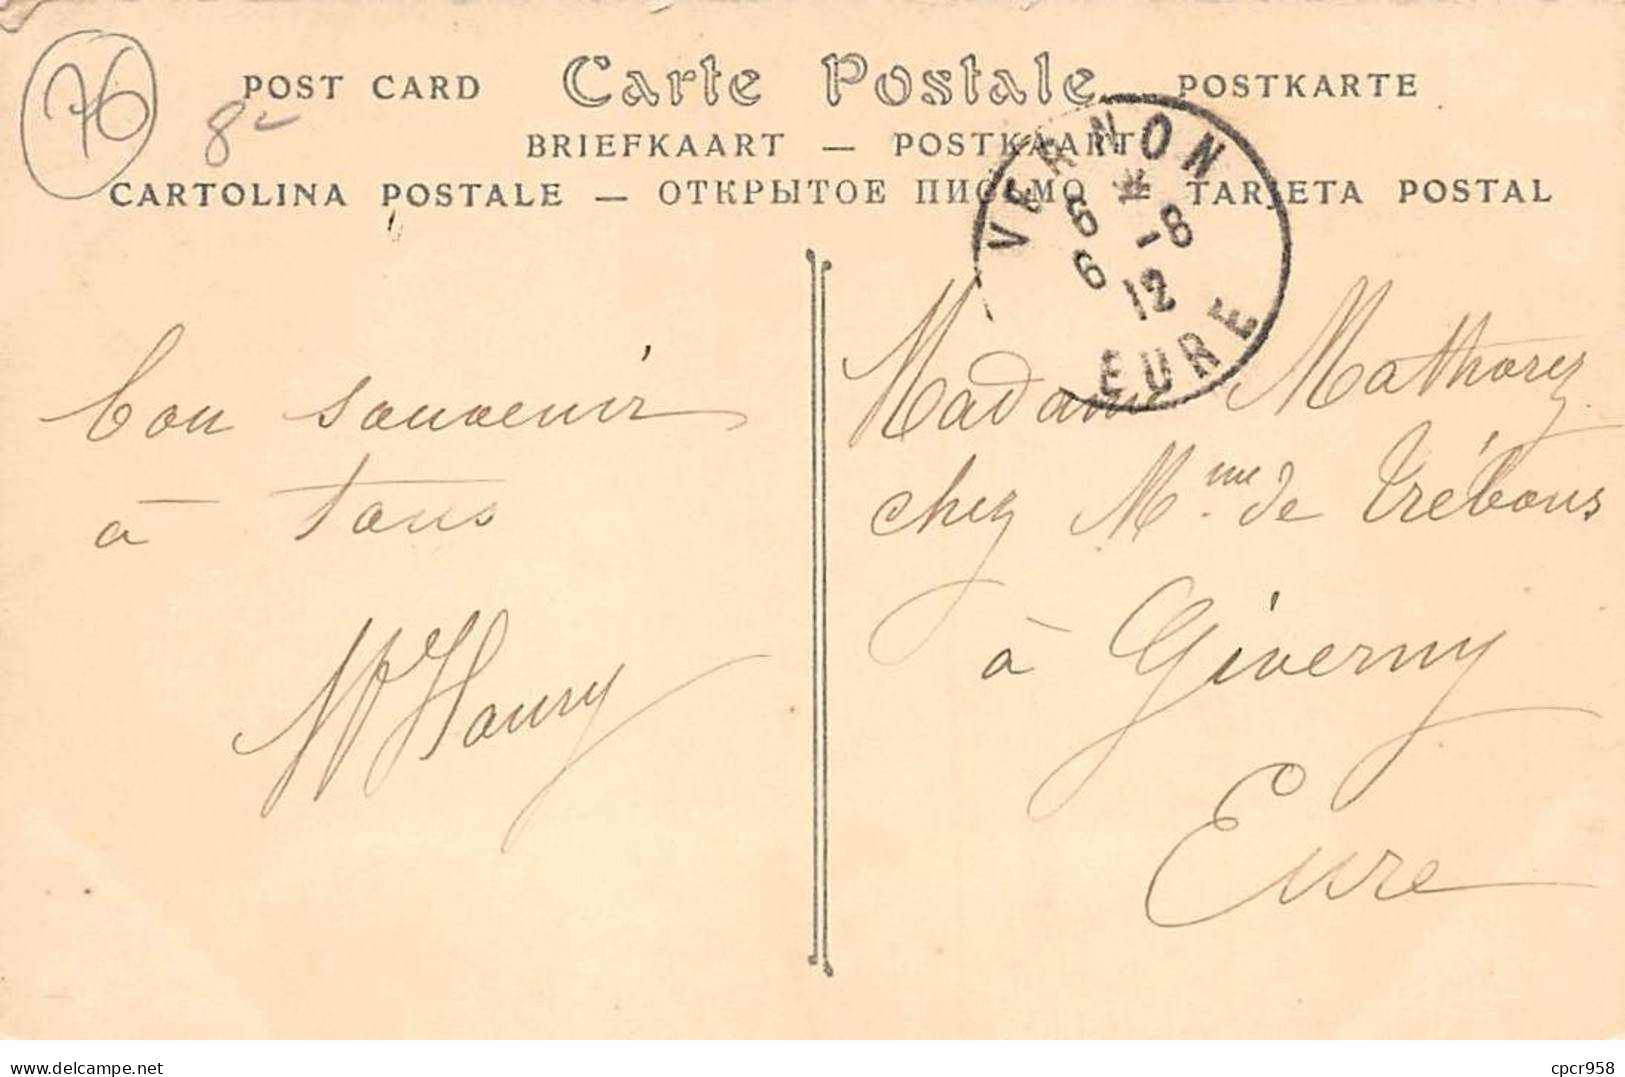 76
8
POST CARD Carte Postale POSTKARTE
BRIEFKAART — POSTKAART
CARTOLINA POSTALE — ОТКРЫТОЕ ПИСЬМО — TARJETA POSTAL
VERNON
6 -8
12
EURE
bon souvenir
à tous
Madame Mathorez
chez Mme de Trébons
à Giverny
Eure
Website: delcampe.net
cpcr958